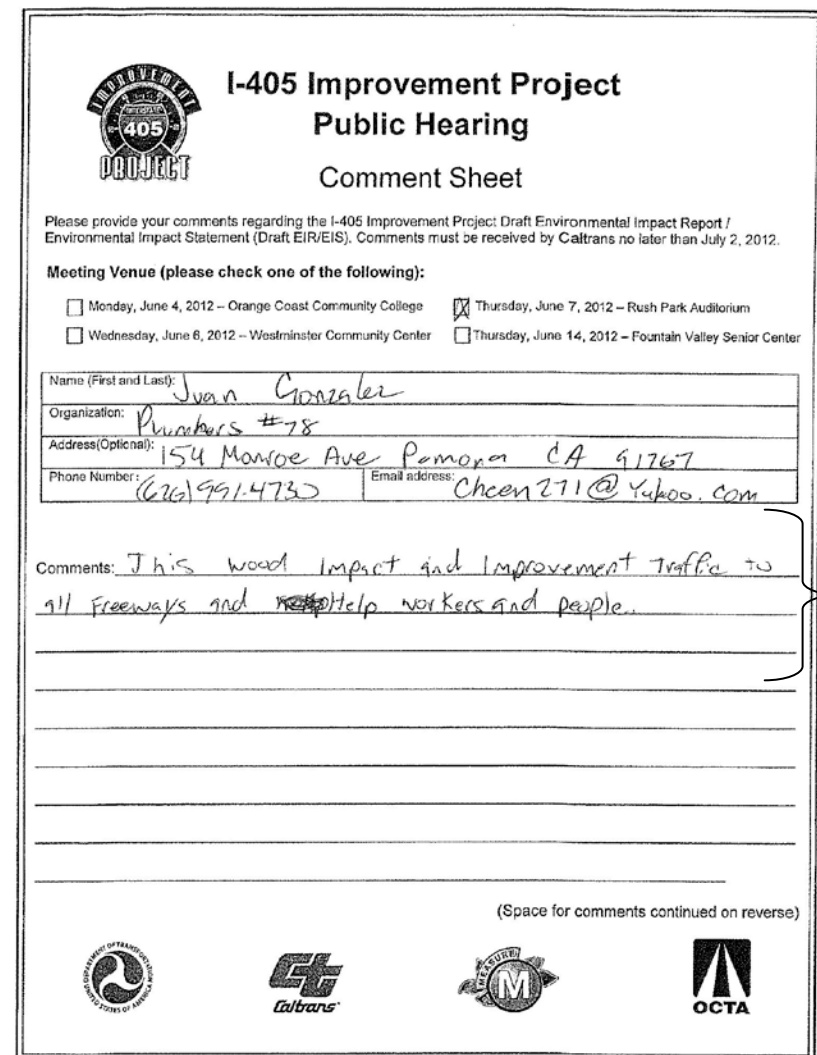 IMPROVEMENT
INTERSTATE
405
PROJECT
I-405 Improvement Project
Public Hearing
Comment Sheet
Please provide your comments regarding the I-405 Improvement Project Draft Environmental Impact Report /
Environmental Impact Statement (Draft EIR/EIS). Comments must be received by Caltrans no later than July 2, 2012.
Meeting Venue (please check one of the following):
Monday, June 4, 2012 – Orange Coast Community College
Thursday, June 7, 2012 – Rush Park Auditorium
Wednesday, June 6, 2012 – Westminster Community Center
Thursday, June 14, 2012 – Fountain Valley Senior Center
Name (First and Last): Juan Gonzalez
Organization: Plumbers #78
Address(Optional): 154 Monroe Ave Pomona CA 91767
Phone Number: (626) 991-4730 Email address: Cheen271@Yahoo.com
Comments: This wood Impact and Improvement Traffic to
all Freeways and Help workers and people.
(Space for comments continued on reverse)
DEPARTMENT OF TRANSPORTATION
UNITED STATES OF AMERICA
Ct
Caltrans
MEASURE
M
OCTA